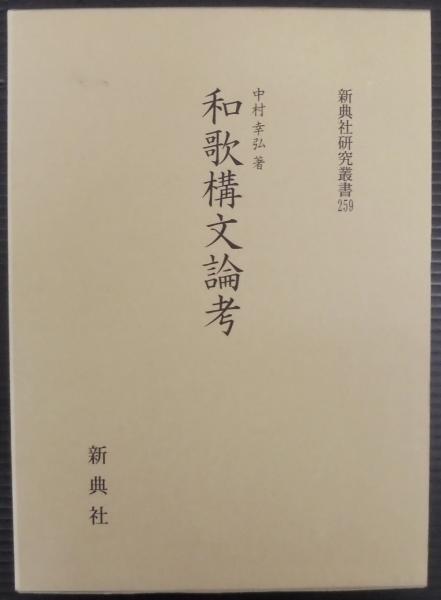 新典社研究叢書259
中村幸弘著
和歌構文論考
新典社